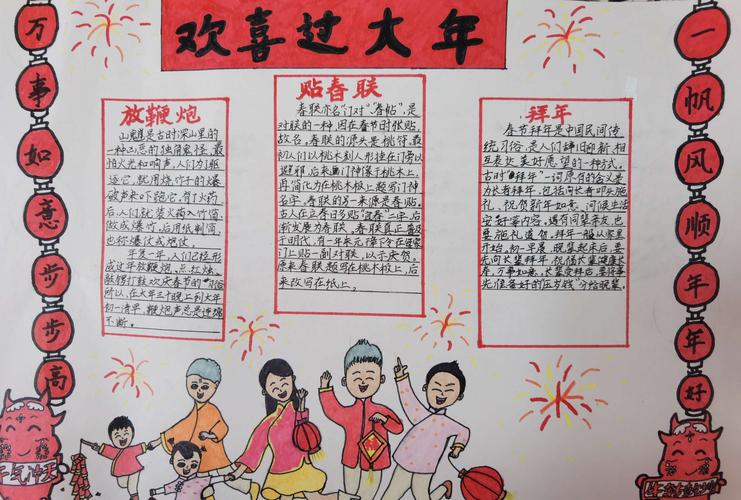 欢喜过大年
万事如意步步高
放鞭炮
山魈是古时深山里的
一种凶恶的独角鬼怪,最
怕火光和响声,人们为驱
逐它,就用烧竹子的爆
破声来吓跑它,有了火药
后,人们就装火药入竹筒,
做成爆竹,后用纸制筒,
也称爆仗或炮仗。
年复一年,人们已经形
成过年放鞭炮、点红烛、
敲锣打鼓欢庆春节的习俗
所以,在大年三十晚上到大年
初一清早,鞭炮声总是连绵
不断。
贴春联
春联亦名"门对"、"春帖",是
对联的一种,因在春节时张贴,
故名。春联的源头是桃符。最
初人们以桃木刻人形挂在门旁以
避邪,后来画门神像于桃木上,
再简化为在桃木板上题写门神
名字。春联的另一来源是春贴。
古人在立春日多贴"宜春"二字,后
渐发展为春联。春联真正普及
于明代,有一年朱元璋下令在
门上贴一副对联,以示庆贺。
原来春联题写在桃木板上,后
来改写在纸上。
拜年
春节拜年是中国民间传
统习俗,是人们辞旧迎新,相
互表达美好愿望的一种方式。
古时"拜年"一词原有的含义是
为长者拜年,包括向长者叩头施
礼、祝贺新年如意、问候生活
安好等内容。遇有同辈亲友,也
要施礼道贺。拜年一般从家里
开始。初一早晨,晚辈起床后,要
先向长辈拜年,祝福长辈健康长
寿,万事如意。长辈受拜后,要将事
先准备好的"压岁钱"分给晚辈。
一帆风顺年年好
牛气冲天